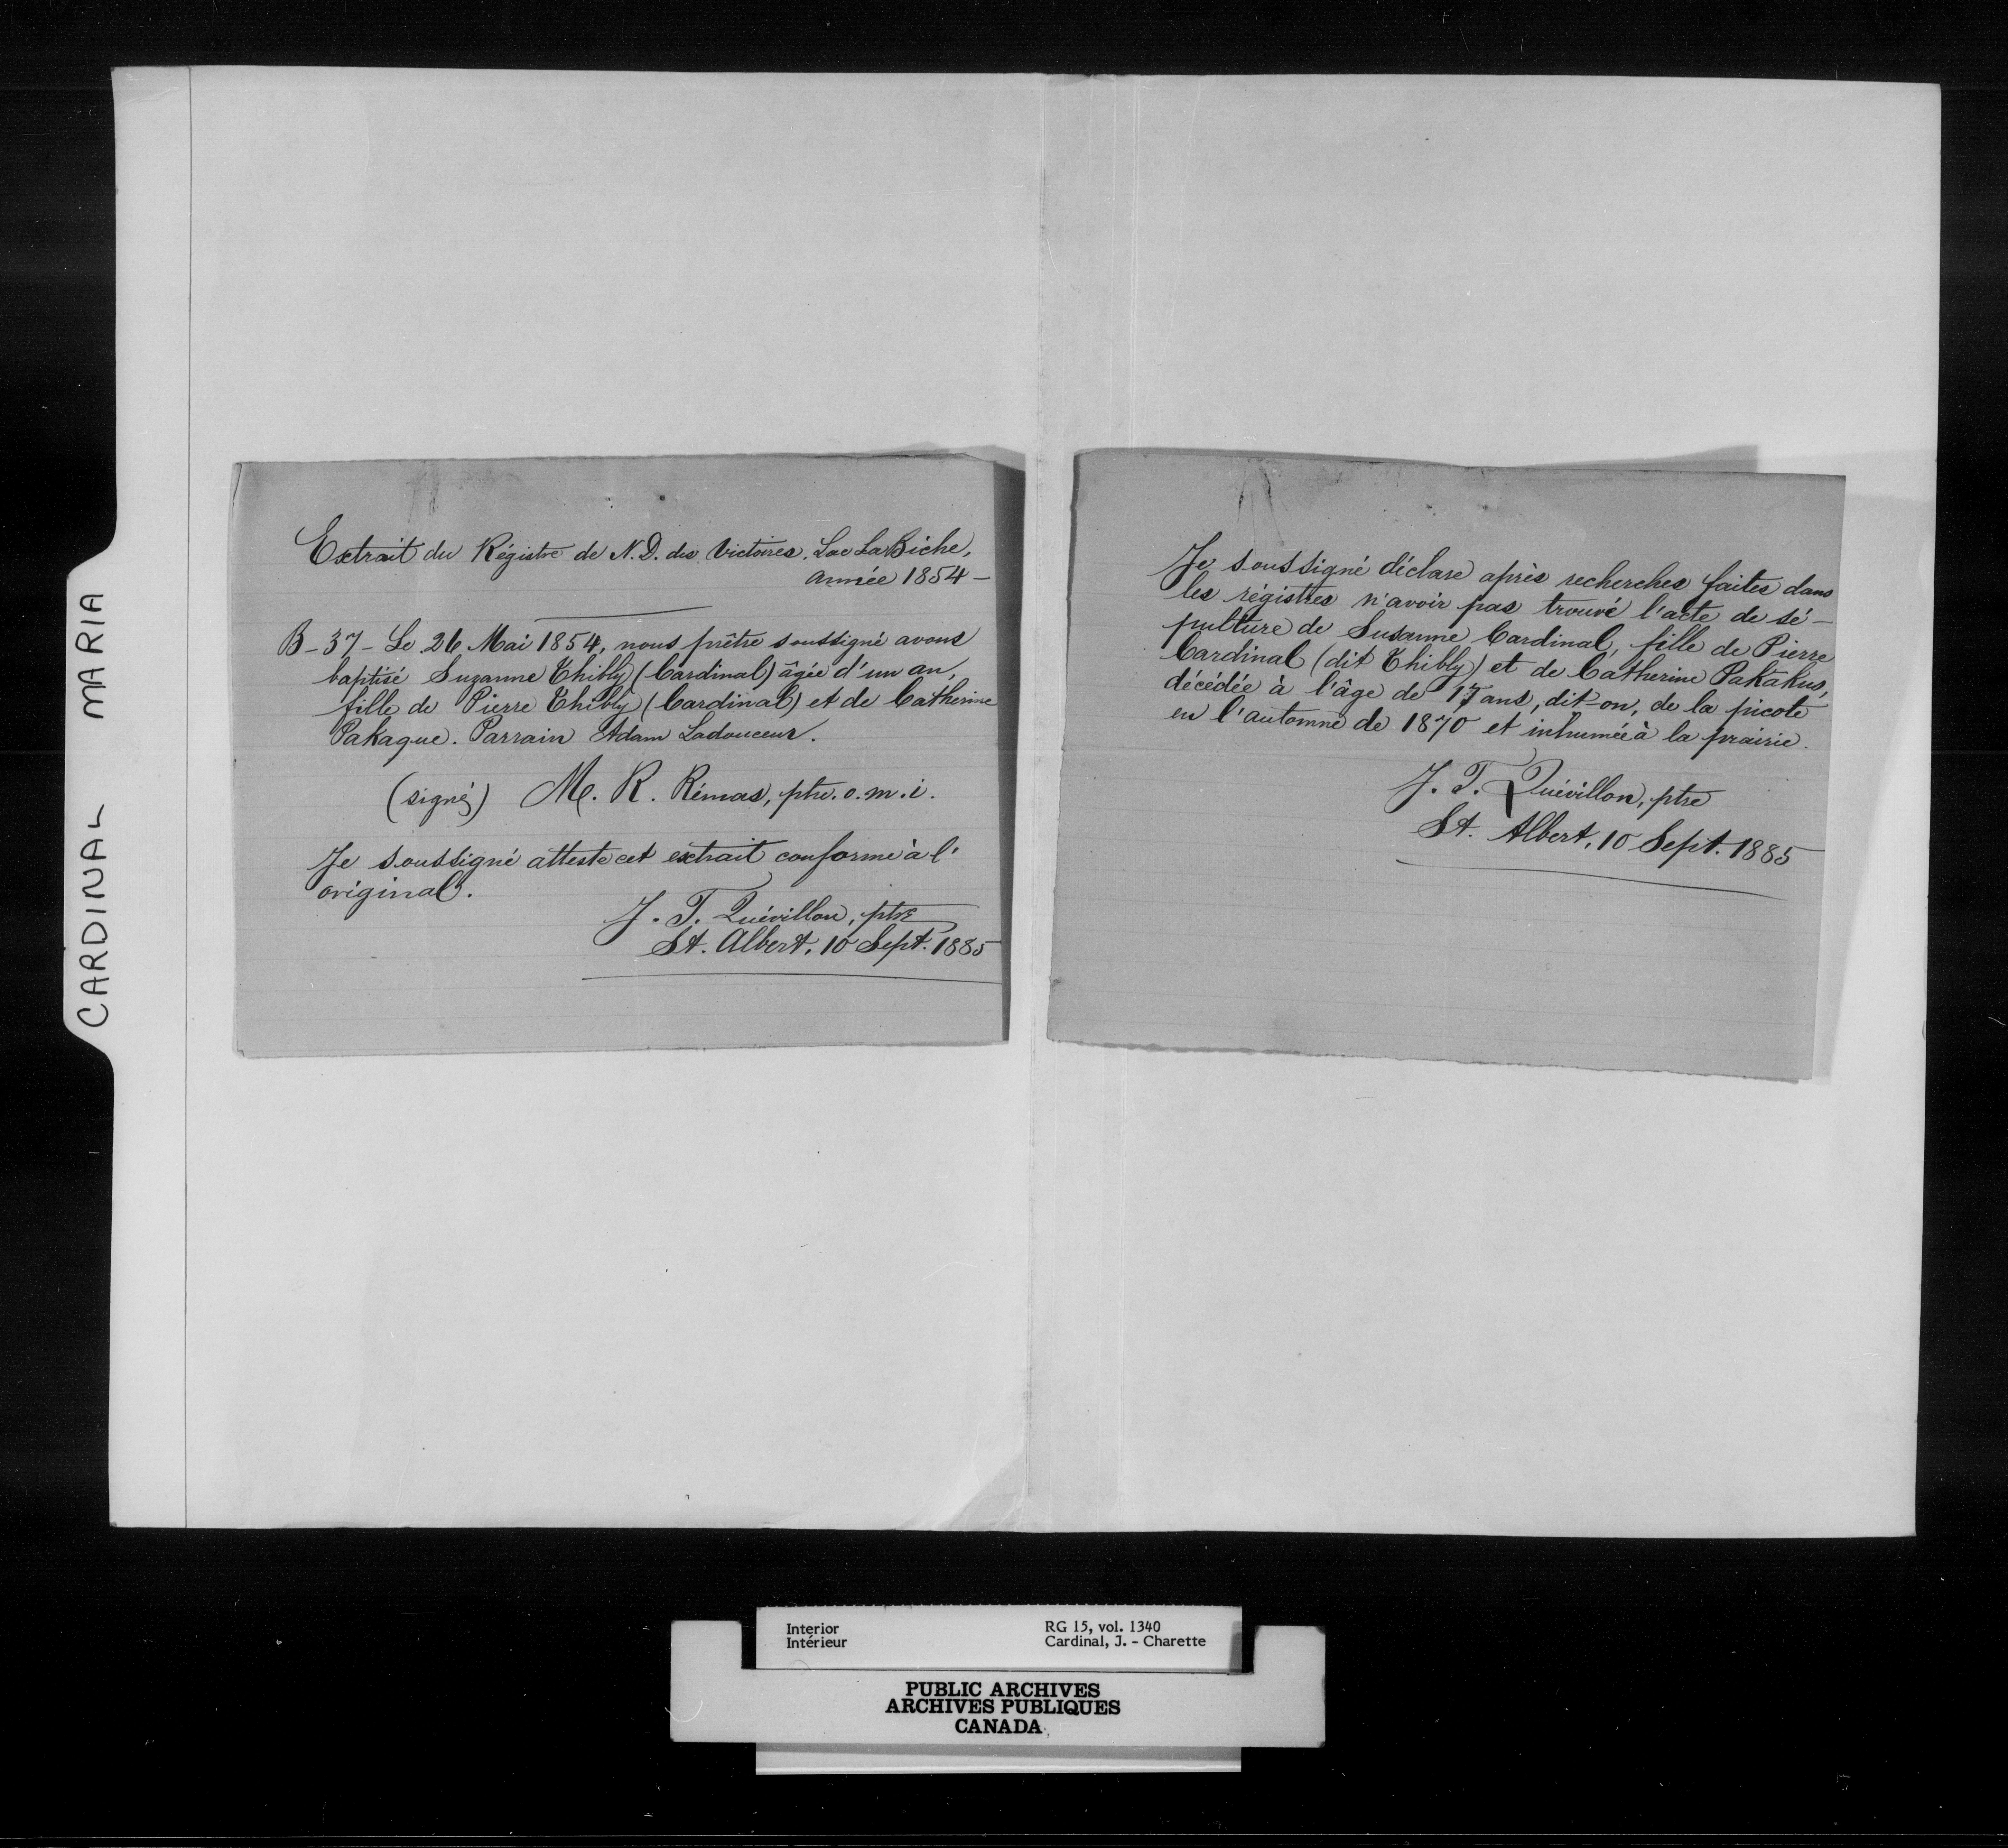 CARDINAL MARIA
Extrait du Régistre de N. D. des Victoires. Lac La Biche,
année 1854 -
B - 37 - Le 26 Mai 1854, nous prêtre soussigné avons
baptisé Suzanne Thibly (Cardinal) âgée d'un an,
fille de Pierre Thibly (Cardinal) et de Catherine
Pakaque. Parrain Adam Ladouceur.
(signé) M. R. Rémas, ptre. o. m. i.
Je soussigné atteste cet extrait conforme à l'
original.
J. T. Quévillon, ptre
St. Albert, 10 Sept. 1885
Je soussigné déclare après recherches faites dans
les régistres n'avoir pas trouvé l'acte de sé-
pulture de Susanne Cardinal, fille de Pierre
Cardinal (dit Thibly) et de Catherine Pakakus,
décédée à l'âge de 17 ans, dit-on, de la picote
en l'automne de 1870 et inhumée à la prairie.
J. T. Quévillon, ptre
St. Albert, 10 Sept. 1885
Interior RG 15, vol. 1340
Intérieur Cardinal, J. - Charette
PUBLIC ARCHIVES
ARCHIVES PUBLIQUES
CANADA